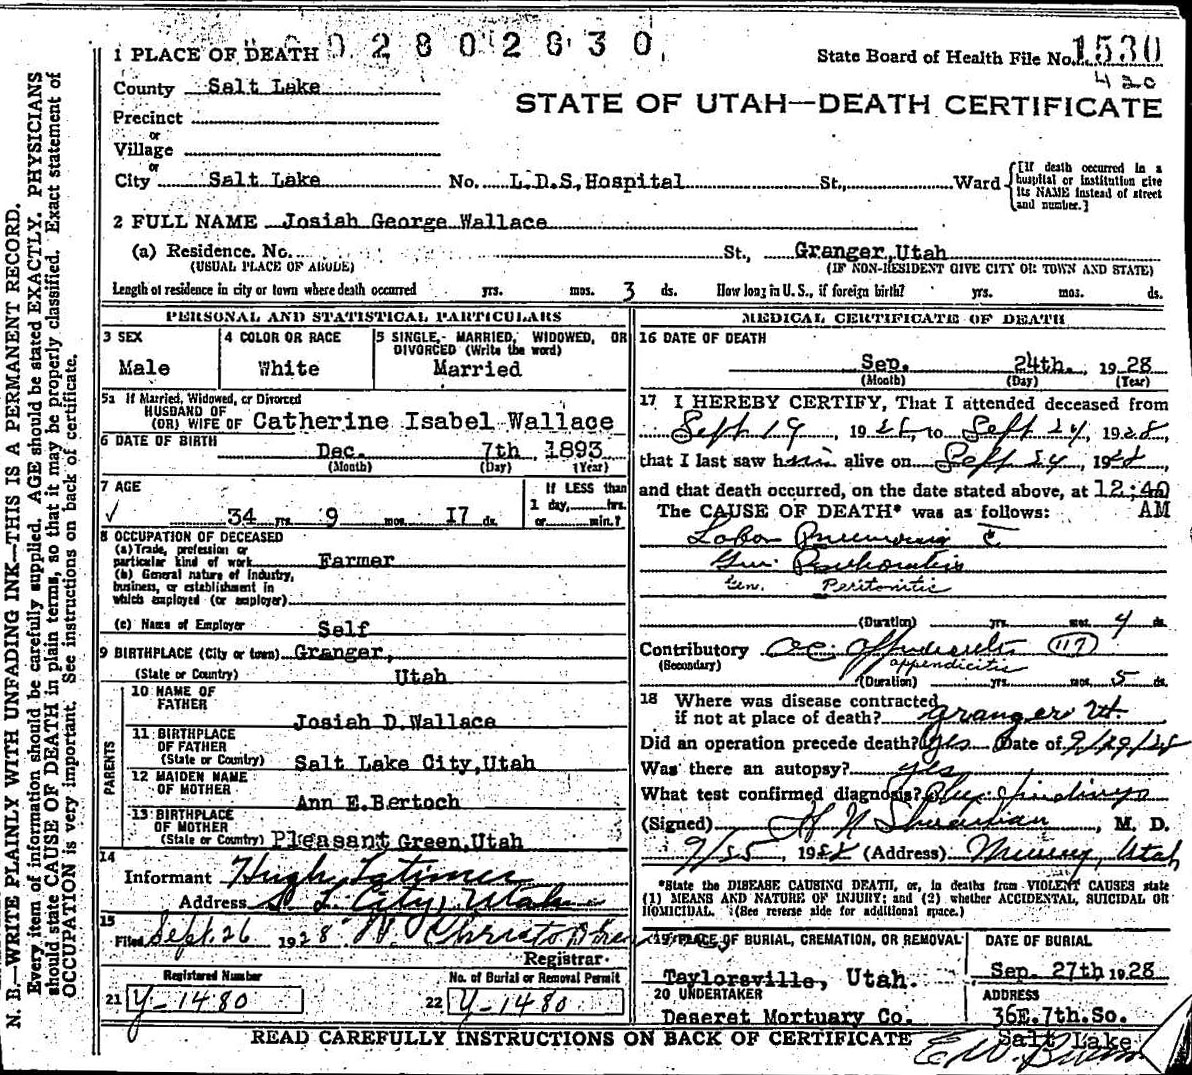 0 2 8 0 2 6 3 0
1 PLACE OF DEATH
State Board of Health File No. 1530
420
County Salt Lake
STATE OF UTAH—DEATH CERTIFICATE
Precinct
or
Village
or
City Salt Lake No. L.D.S. Hospital St., Ward
[If death occurred in a
hospital or institution give
its NAME instead of street
and number.]
2 FULL NAME Josiah George Wallace
(a) Residence. No. St., Granger, Utah
(USUAL PLACE OF ABODE) (IF NON-RESIDENT GIVE CITY OR TOWN AND STATE)
Length of residence in city or town where death occurred yrs. mos. 3 ds. How long in U. S., if foreign birth? yrs. mos. ds.
PERSONAL AND STATISTICAL PARTICULARS
3 SEX
Male
4 COLOR OR RACE
White
5 SINGLE, MARRIED, WIDOWED, OR
DIVORCED (Write the word)
Married
5a If Married, Widowed, or Divorced
HUSBAND OF
(OR) WIFE OF Catherine Isabel Wallace
6 DATE OF BIRTH
Dec. 7th, 1893
(Month) (Day) (Year)
7 AGE
34 yrs. 9 mos. 17 ds.
If LESS than
1 day, hrs.
or min.?
8 OCCUPATION OF DECEASED
(a) Trade, profession or
particular kind of work Farmer
(b) General nature of industry,
business, or establishment in
which employed (or employer)
(c) Name of Employer Self
9 BIRTHPLACE (City or town) Granger,
(State or Country) Utah
PARENTS
10 NAME OF
FATHER
Josiah D. Wallace
11 BIRTHPLACE
OF FATHER
(State or Country) Salt Lake City, Utah
12 MAIDEN NAME
OF MOTHER
Ann E. Bertoch
13 BIRTHPLACE
OF MOTHER
(State or Country) Pleasant Green, Utah
14
Informant Hugh Latimer
Address S L City, Utah
15
Filed Sept. 26 1928
Registrar.
Registered Number
21 Y-1480
No. of Burial or Removal Permit
22 Y-1480
MEDICAL CERTIFICATE OF DEATH
16 DATE OF DEATH
Sep. 24th. 1928
(Month) (Day) (Year)
17 I HEREBY CERTIFY, That I attended deceased from
Sept 19, 1928, to Sept 24, 1928,
that I last saw him alive on Sept 24, 1928,
and that death occurred, on the date stated above, at 12:40
AM
The CAUSE OF DEATH* was as follows:
Lobar Pneumonia c̄
Gen.
Gen. Peritonitis
(Duration) yrs. mos. 4 ds.
Contributory ac. appendicitis (117)
(Secondary) appendicitis
(Duration) yrs. mos. 5 ds.
18 Where was disease contracted
if not at place of death? Granger Ut.
Did an operation precede death? Yes Date of
Was there an autopsy? yes
What test confirmed diagnosis? findings
(Signed) , M. D.
1928 (Address) Murray, Utah
*State the DISEASE CAUSING DEATH, or, in deaths from VIOLENT CAUSES state
(1) MEANS AND NATURE OF INJURY; and (2) whether ACCIDENTAL, SUICIDAL OR
HOMICIDAL. (See reverse side for additional space.)
19 PLACE OF BURIAL, CREMATION, OR REMOVAL
Taylorsville, Utah.
DATE OF BURIAL
Sep. 27th, 1928
20 UNDERTAKER
Deseret Mortuary Co.
ADDRESS
36E. 7th. So.
Salt Lake
READ CAREFULLY INSTRUCTIONS ON BACK OF CERTIFICATE
N. B.—WRITE PLAINLY WITH UNFADING INK—THIS IS A PERMANENT RECORD.
Every item of information should be carefully supplied. AGE should be stated EXACTLY. PHYSICIANS
should state CAUSE OF DEATH in plain terms, so that it may be properly classified. Exact statement of
OCCUPATION is very important. See instructions on back of certificate.